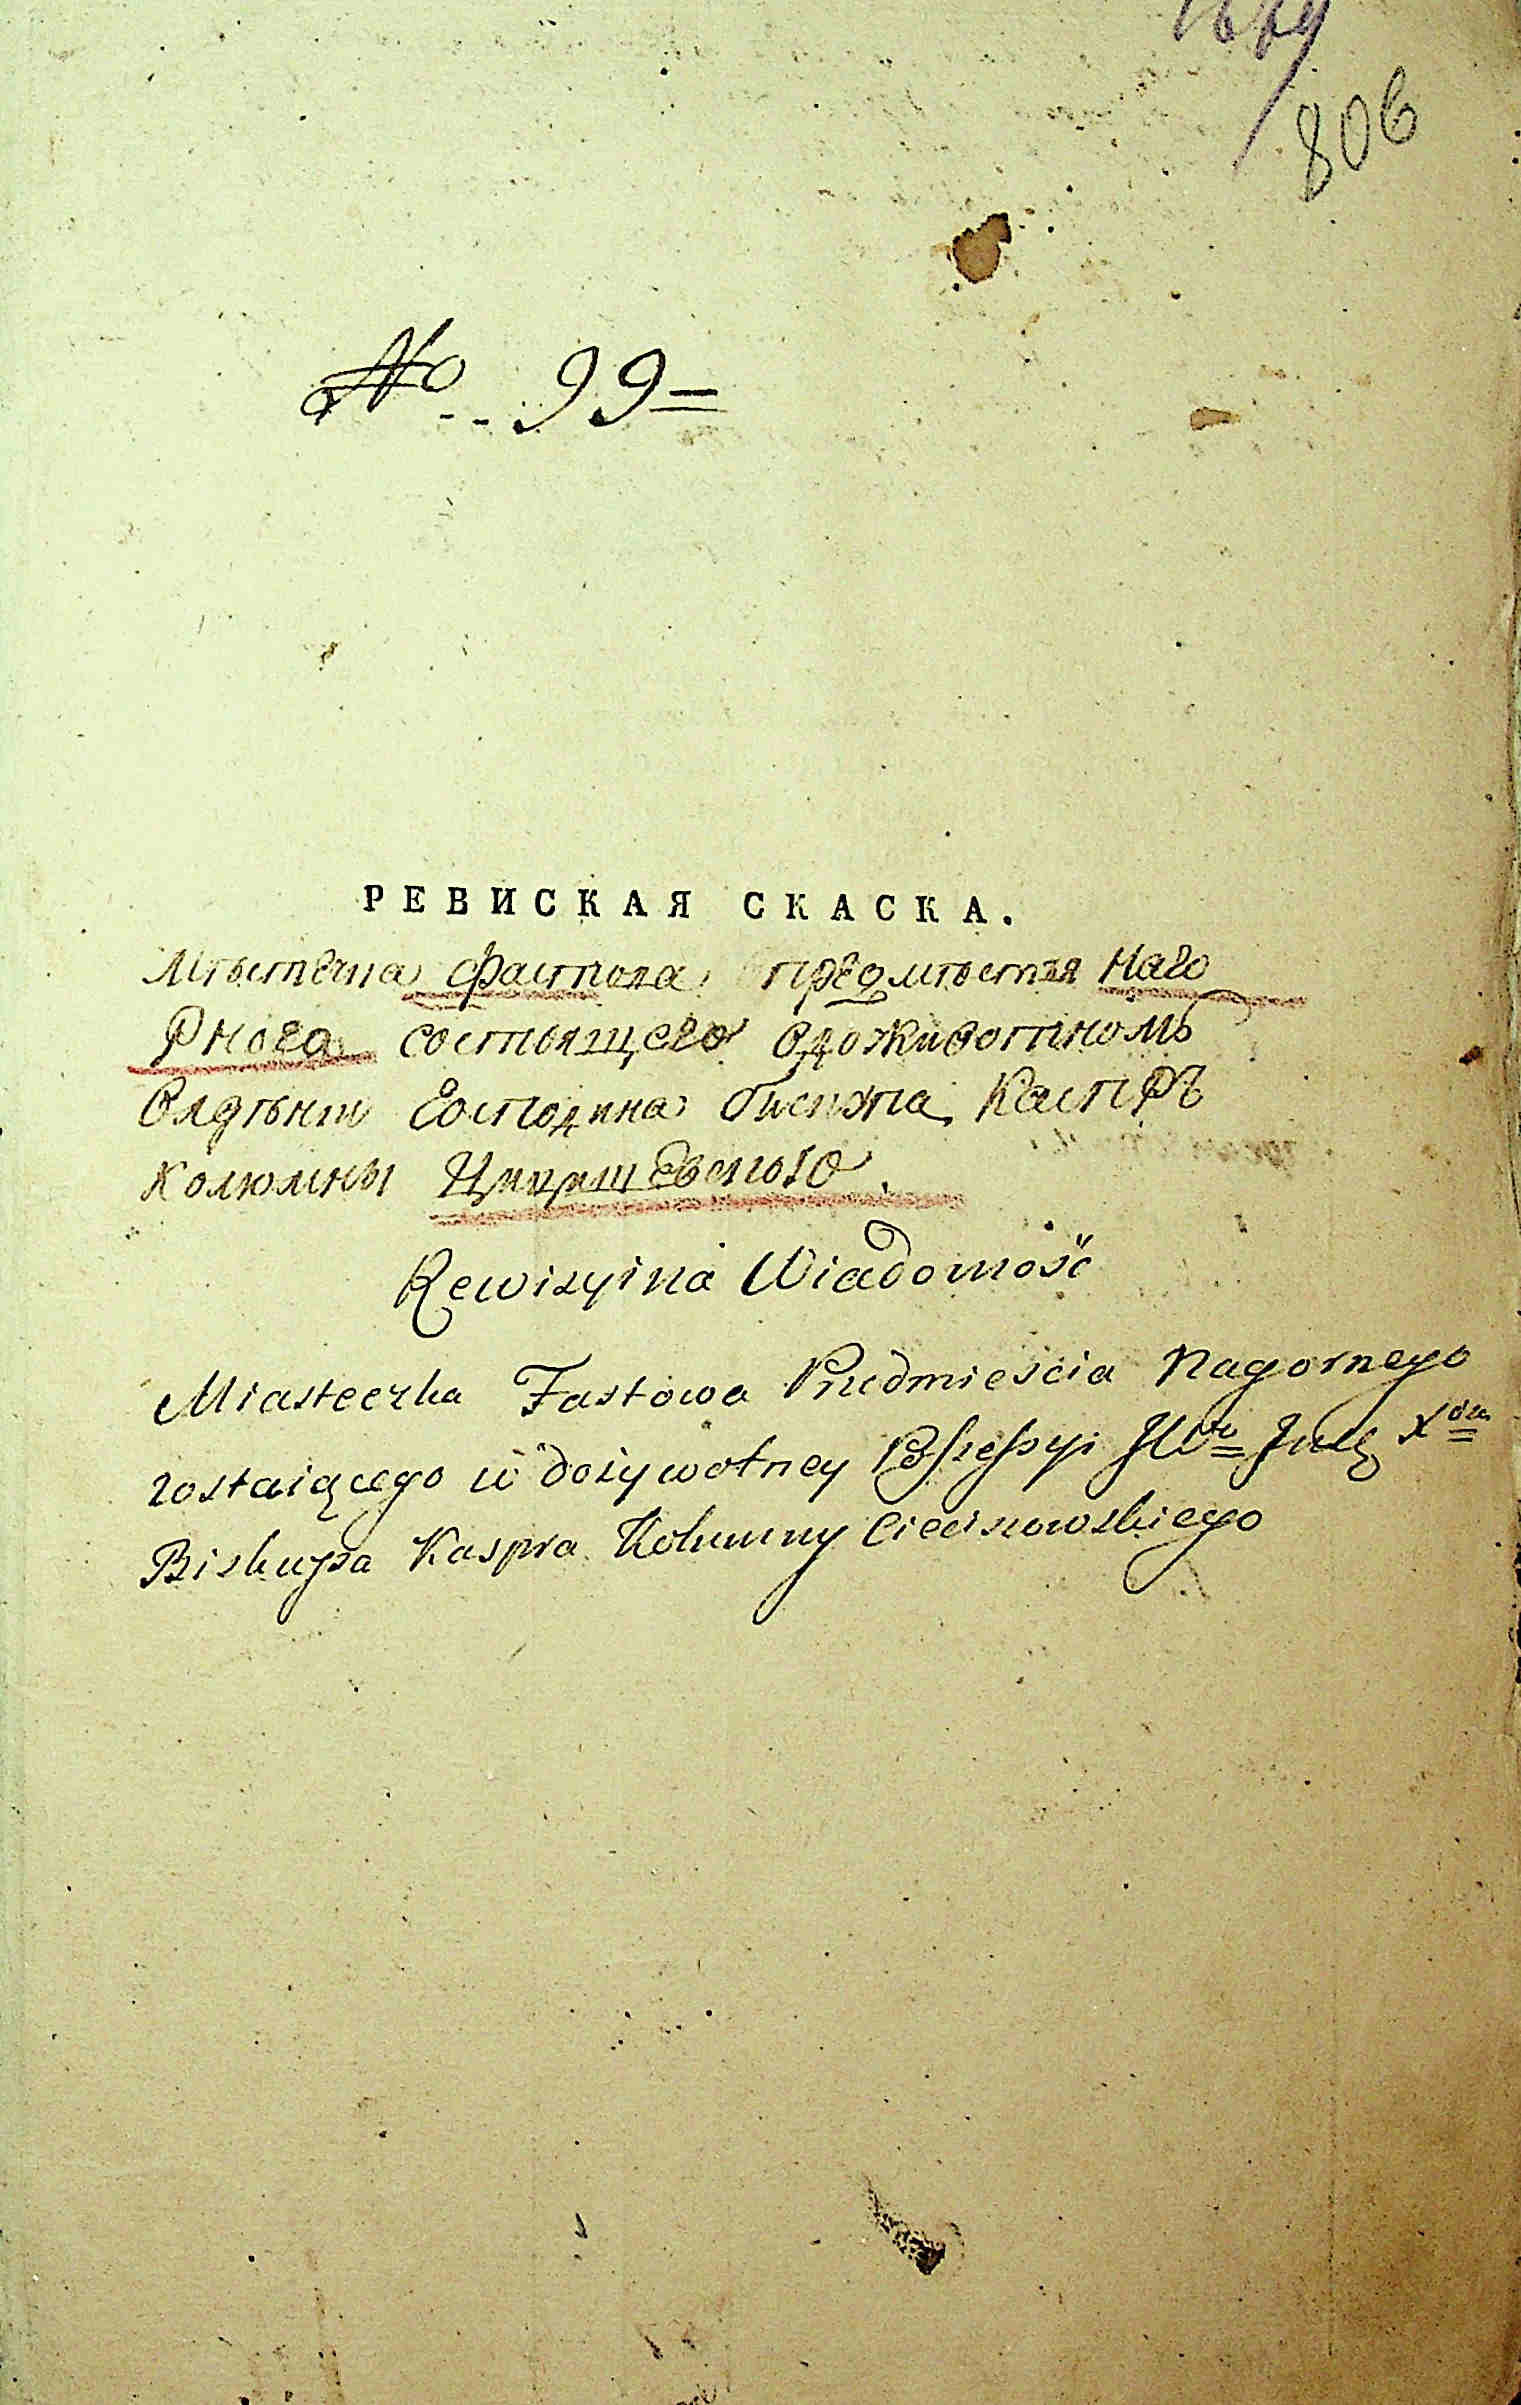 806
No.. 99=
РЕВИСКАЯ СКАСКА.
Мѣстечка Фастова предмѣстья Наго
рного состоящего вдоживотномъ
влдѣнии Господина бискупа Каспръ
Колюмны Цицишевского.
Rewizyina Wiadomość
Miasteczka Fastowa Przedmieścia Nagornego
zostaiącego w dożywotney Possessyi JWo Jmę Xdza
Biskupa Kaspra Kolumny Cieciszowskiego